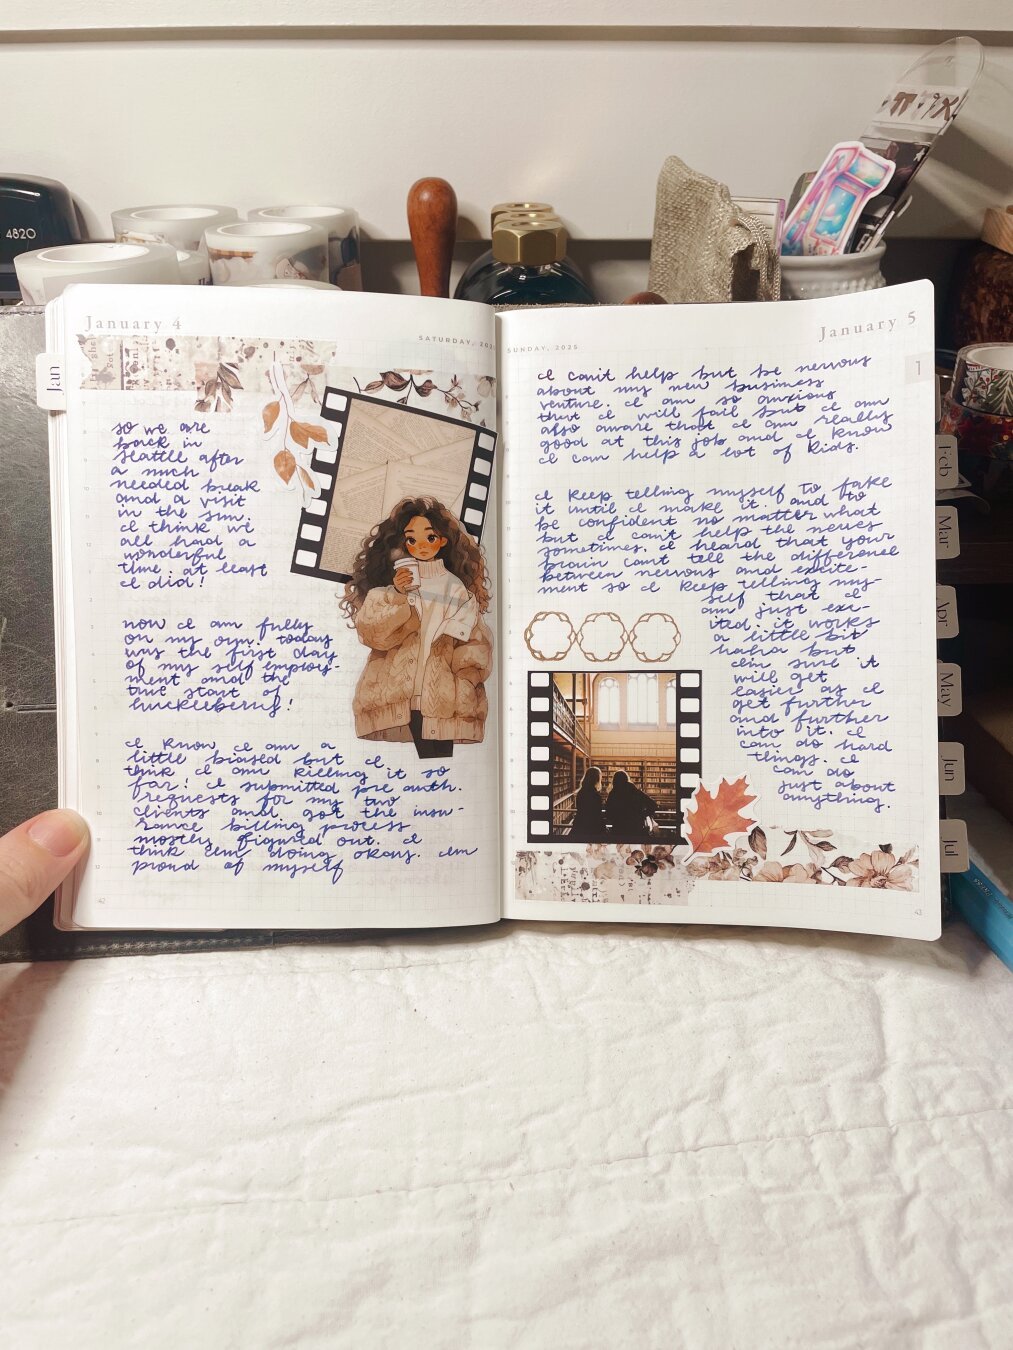 4820
January 4
SATURDAY, 202
Jan
so we are
back in
seattle after
a much
needed break
and a visit
in the sun.
I think we
all had a
wonderful
time. at least
I did!
now I am fully
on my own. today
was the first day
of my self employ-
ment and the
true start of
huckleberry!
I know I am a
little biased but I
think I am killing it so
far! I submitted pre auth.
requests for my two
clients and got the insu-
rance billing process
mostly figured out. I
think I'm doing okay. I'm
proud of myself
42
SUNDAY, 2025
January 5
1
I can't help but be nervous
about my new business
venture. I am so anxious
that I will fail but I am
also aware that I am really
good at this job and I know
I can help a lot of kids.
I keep telling myself to fake
it until I make it. and to
be confident no matter what
but I can't help the nerves
sometimes. I heard that your
brain can't tell the difference
between nervous and excite-
ment so I keep telling my-
self that I
am just exci-
ited. it works
a little bit
haha but
I'm sure it
will get
easier as I
get further
and further
into it. I
can do hard
things. I
can do
just about
anything.
43
Feb
Mar
Apr
May
Jun
Jul